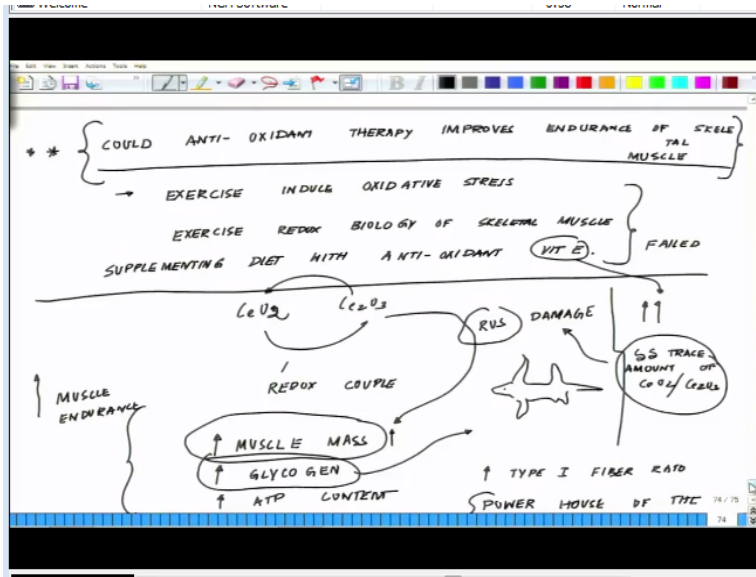 File Edit View Insert Actions Tools Help
* * COULD ANTI-OXIDANT THERAPY IMPROVES ENDURANCE OF SKELE
TAL
MUSCLE
→ EXERCISE INDUCE OXIDATIVE STRESS
EXERCISE REDOX BIOLOGY OF SKELETAL MUSCLE
SUPPLEMENTING DIET WITH ANTI-OXIDANT VIT E.
FAILED
CeO2 Ce2O3
REDOX COUPLE
↑ MUSCLE
ENDURANCE
↑ MUSCLE MASS ↑
↑ GLYCOGEN
↑ ATP CONTENT
DAMAGE
↑↑
TRACE
AMOUNT OF
CeO2/Ce2O3
↑ TYPE I FIBER RATO
POWER HOUSE OF THE
74 / 75
74